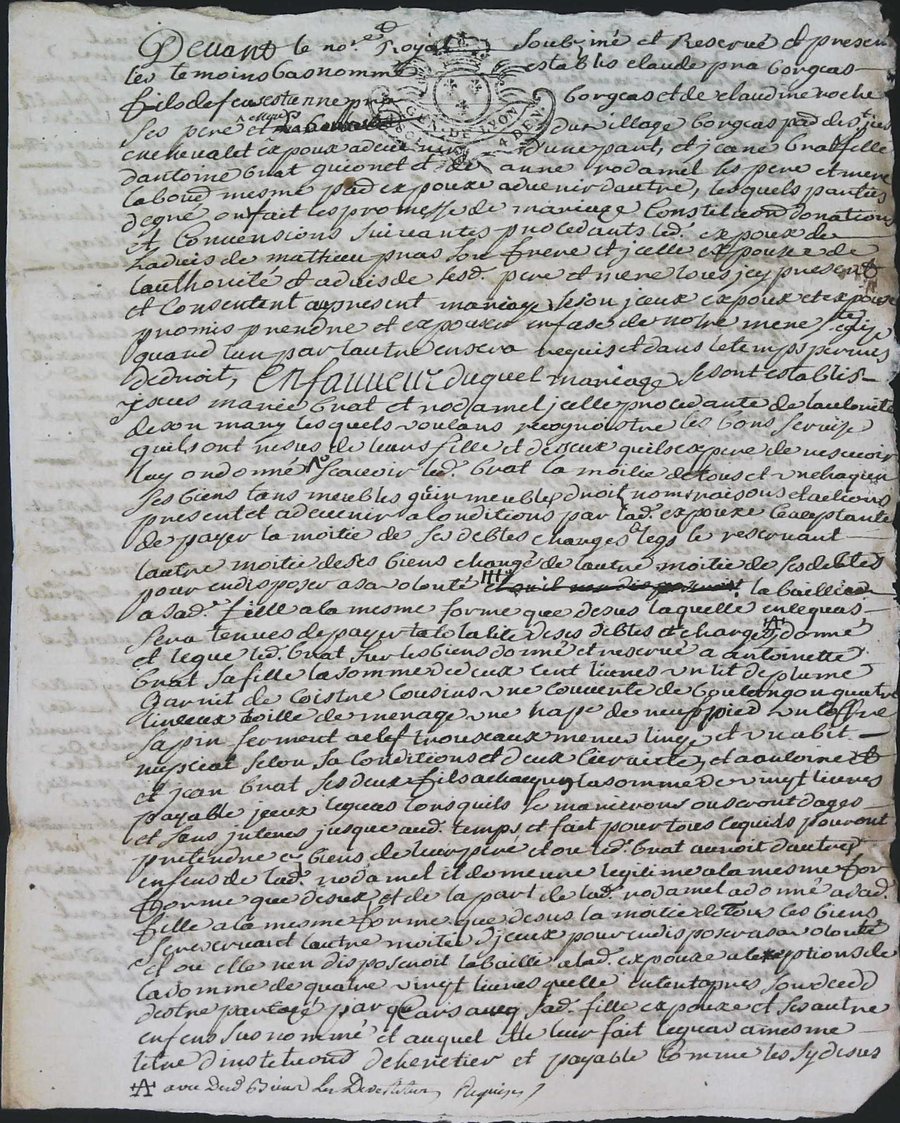 Devant le no.re Royal soubsiné et Reservé et presen
les temoins bas nommé establis claude pra borgeas
fils de feu estienne pra borgeas et de claudine roche
ses pere et du village borgeas par. de st jus
en chevalet expoux advenir d'une part, et jeane brat fille
dantoine brat guionet et de anne rodamel les pere et mere
laboud mesme par. expouze advenir dautre, lesquels parties
de gré on fait les promesse de mariage Constitution donations
et Convensions suivantes procedants led. expoux de
ladvis de mathieu pras son frere et jcelle expouse de
lauthorité et advis de sesd. pere et mere tous jcy present
et Consentent au present mariage se son jceux expoux et expouse
promis prendre et expouzer en fase de notre mere ste eglize
quand lun par lautre en sera requis et dans le temps permis
de droit, En faveur duquel mariage se sont establis
jceux mariés brat et rodamel jcelle procedante de lautorité
de son mary lesquels voulans recognoistre les bons servise
quils ont resus de leurs fille et de ceux quils expere den resevoir
luy on donné scavoir led. brat la moitie de tous et un chaqun
ses biens tans meubles quinmeubles droit nom raisons et actions
present et advenir a Conditions par lad. expouze lacceptante
de payer la moitie de ses debtes charges legs se reservant
lautre moitie de ses biens chargé de lautre moitie de ses debtes
pour en disposer a sa volonté la baillé
a sad. fille a la mesme forme que desus laquelle en le cas
sera tenues de payer la totalite de ses debtes et charges, donne
et legue led. brat sur les biens donné et reservé a antoinette
brat sa fille la somme de deux cent livres un lit de plume
Garnit de Coistre Coussins une Couverte de quatre
linseux toille de menage une nape de neuf pied un Coffre
sapin ferment a clef trouseaux menu linge et un abit
nupsial selon sa Conditions et deux et a antoine
et jean brat ses deux fils a chaqun la somme de vingt livres
payable jceux legats lorsquils se marierons ou seront dages
et sans interes jusque aud. temps et fait pour tous ce quils pouront
pretendre es biens de leur pere et ou led. brat auroit dautres
enfens de lad. rodamel il demeure legitime a la mesme for
forme que desus, et de la part de lad. rodamel a donné a sad.
fille a la mesme forme que desus la moitie de Tous ses biens
se reservant lautre moitie djceux pour en disposer a sa volonté
et ou elle nen disposeroit la baille a lad. expouze a exseptions de
la somme de quatre vingt livres quelle entent apres son deced
destre partagé par egars aveq sad. fille expouze et ses autre
enfens sus nommé et auquel elle leur fait legat a mesme
titre dinstitutions deheretier et payable Comme les sydesus